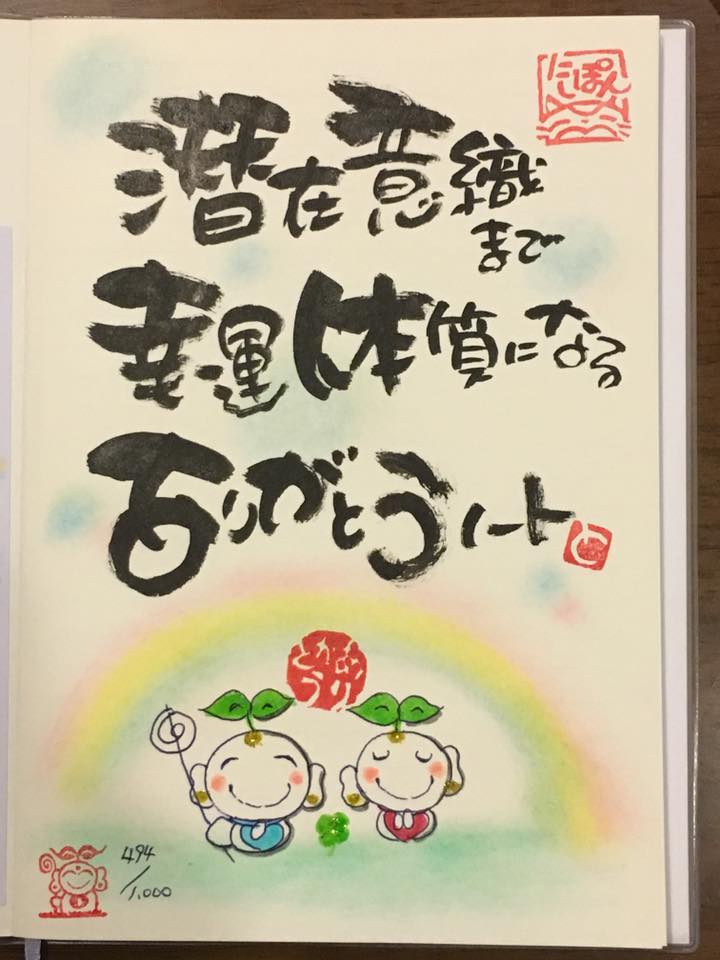 潜在意織
まで
幸運体質になる
ありがとうノート
ありがとう
494/1,000